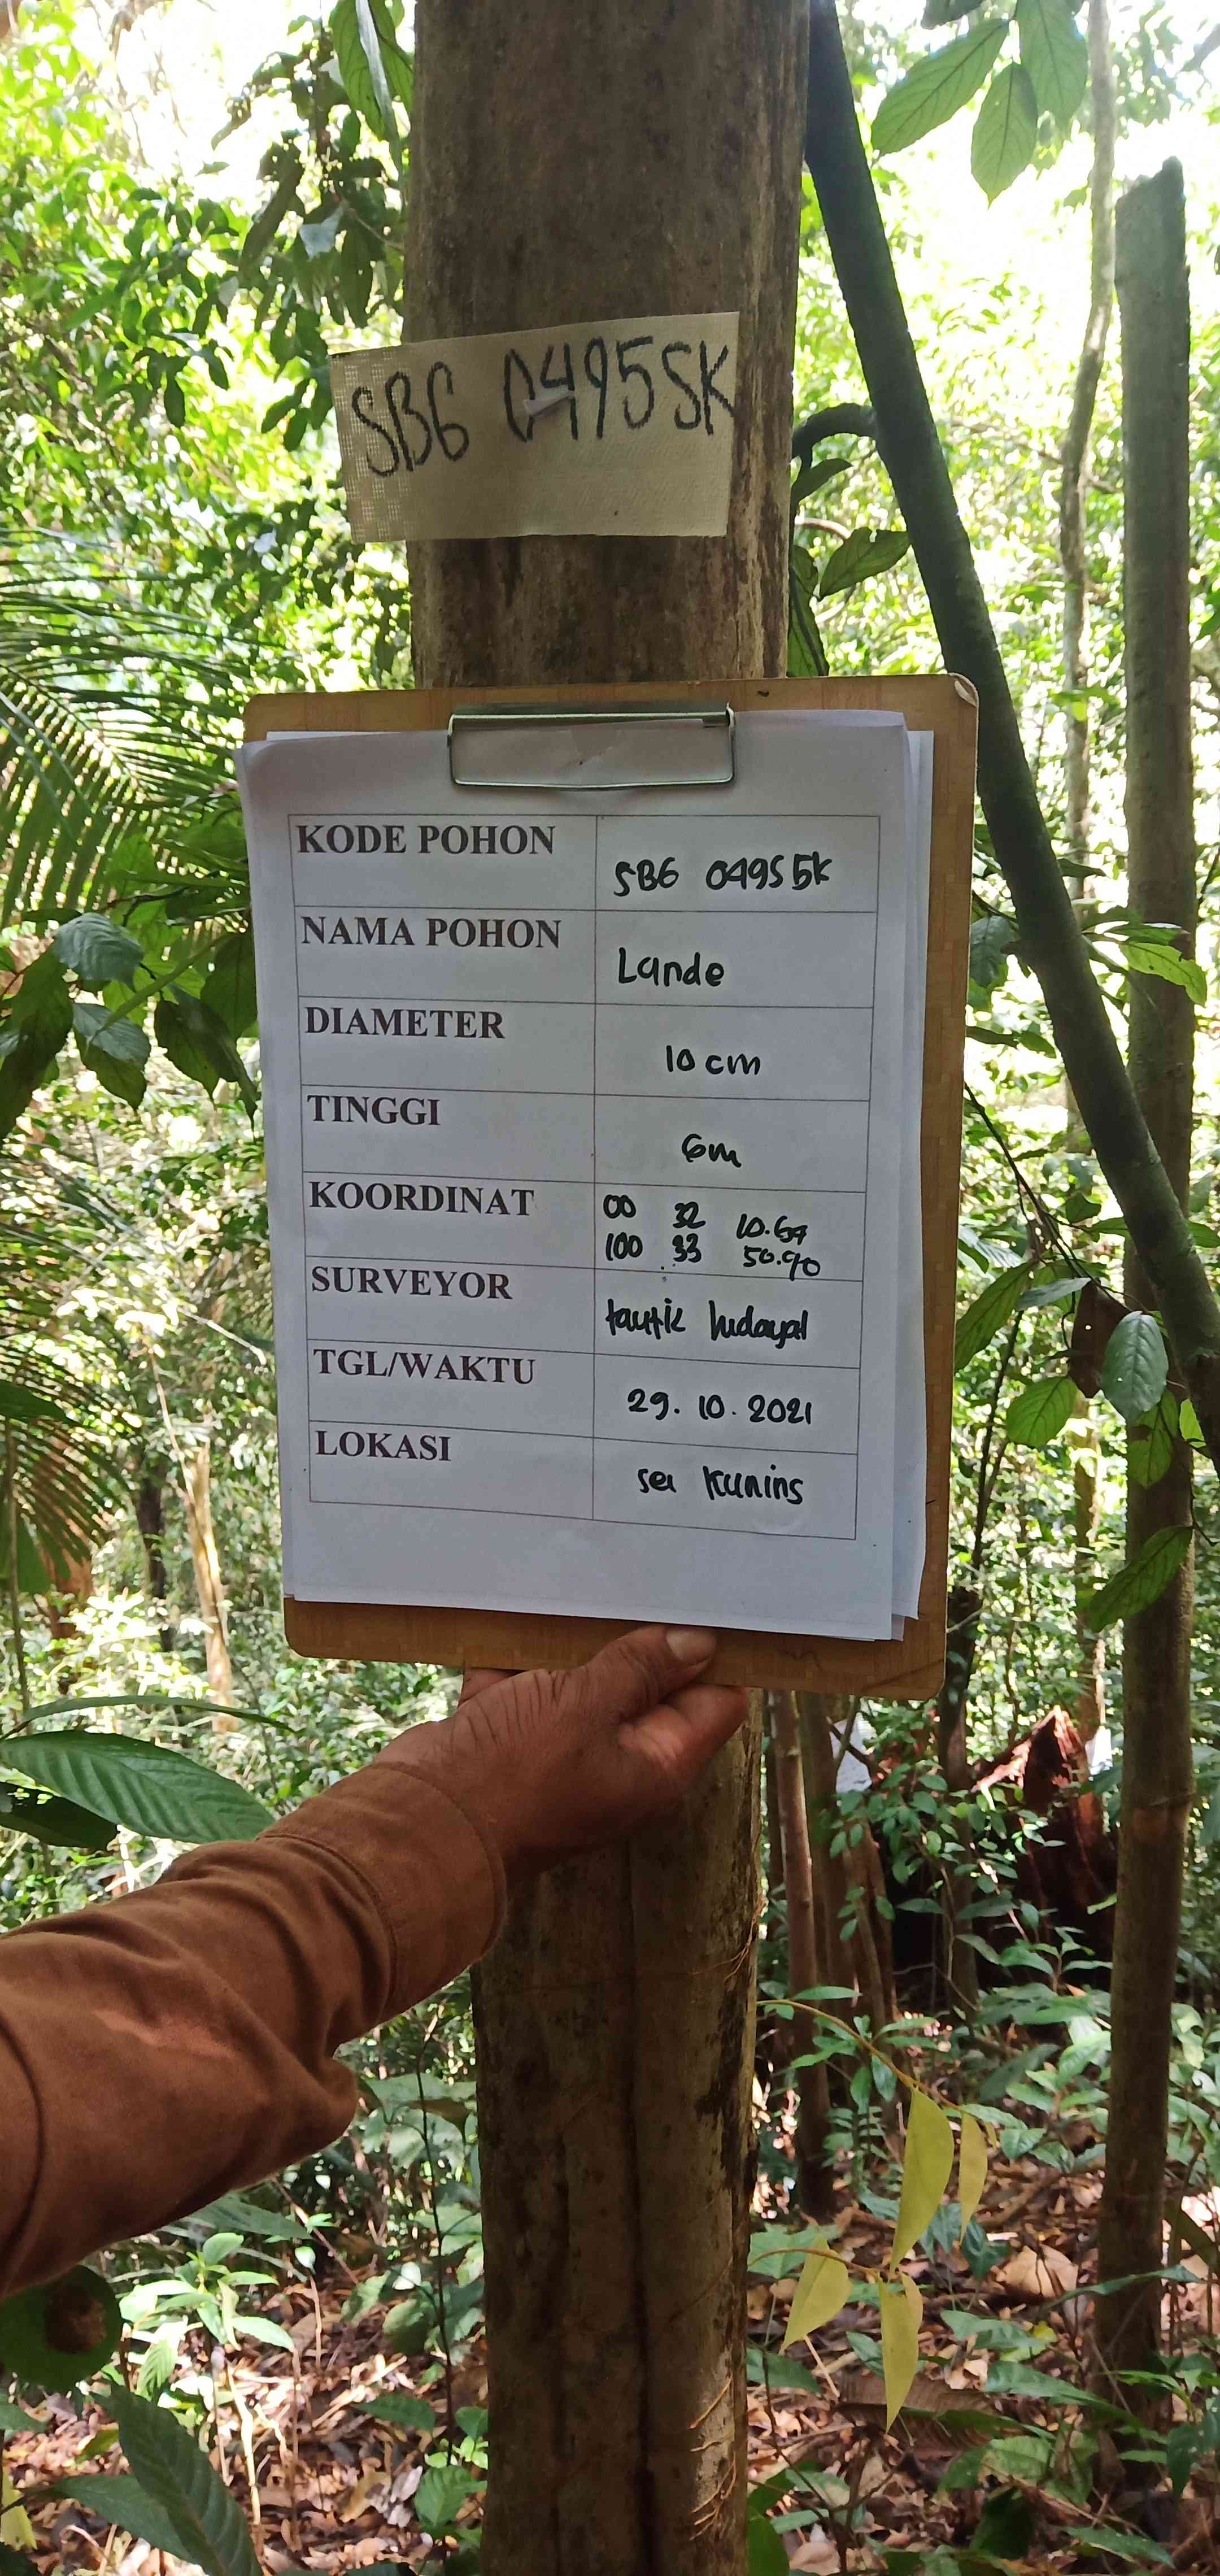 SBG 0495SK
KODE POHON SBG 0495SK
NAMA POHON Lande
DIAMETER 10 cm
TINGGI 6m
KOORDINAT 00 32 10.67
100 33 50.90
SURVEYOR taufik hidayat
TGL/WAKTU 29. 10. 2021
LOKASI sei kuning